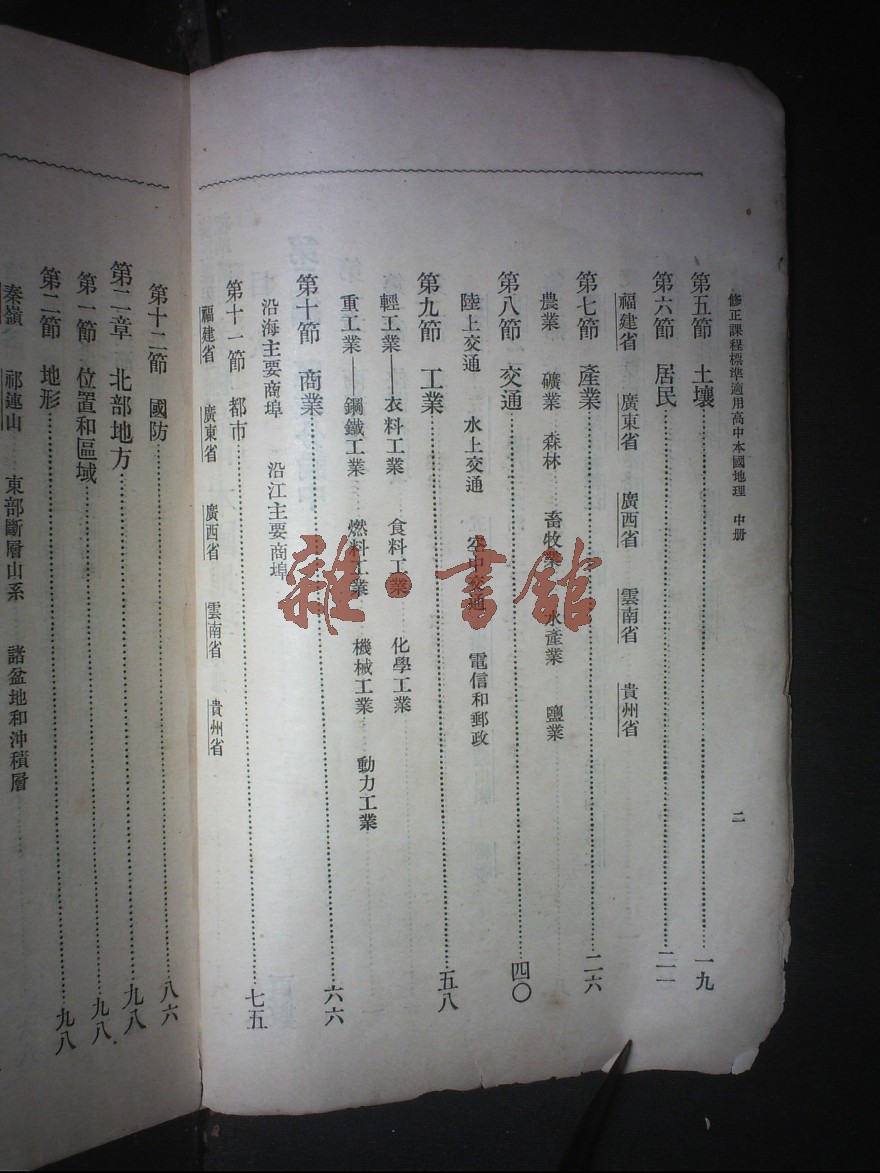 修正課程標準適用高中本國地理　中册
二
第五節　土壤……一九
第六節　居民……二一
福建省　廣東省　廣西省　雲南省　貴州省
第七節　產業……二六
農業　礦業　森林　畜牧業　水產業　鹽業
第八節　交通……四〇
陸上交通　水上交通　空中交通　電信和郵政
第九節　工業……五八
輕工業——衣料工業　食料工業　化學工業
重工業——鋼鐵工業　燃料工業　機械工業　動力工業
第十節　商業……六六
沿海主要商埠　沿江主要商埠
第十一節　都市……七五
福建省　廣東省　廣西省　雲南省　貴州省
第十二節　國防……八六
第二章　北部地方……九八
第一節　位置和區域……九八
第二節　地形……九八
秦嶺　祁連山　東部斷層山系　諸盆地和沖積層
雜·書館